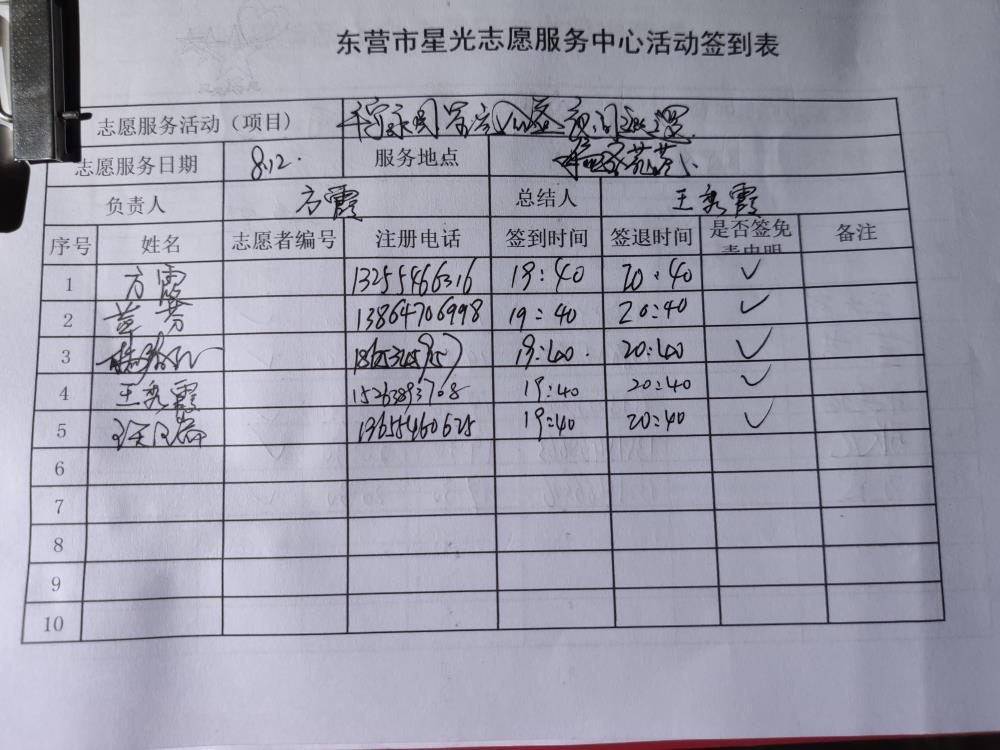 东营市星光志愿服务中心活动签到表
志愿服务活动（项目）
志愿服务日期 8.12. 服务地点
负责人 方霞 总结人 王秀霞
序号 姓名 志愿者编号 注册电话 签到时间 签退时间 是否签免责声明 备注
1 方霞 13255466316 19:40 20:40 ✓
2 13864706998 19:40 20:40 ✓
3 19:40 20:40 ✓
4 王秀霞 15263893708 19:40 20:40 ✓
5 13655460625 19:40 20:40 ✓
6
7
8
9
10